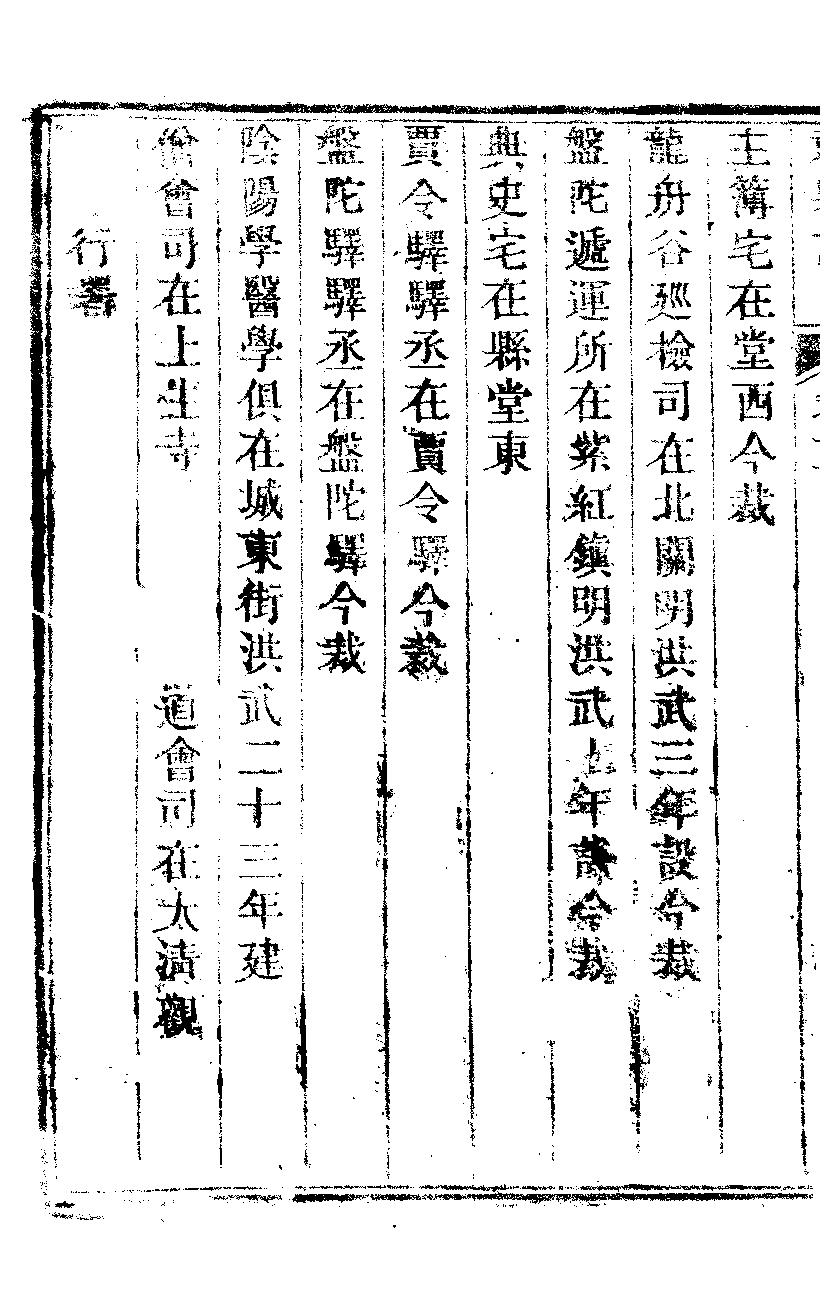 主簿宅在堂西今裁
龍舟谷廵檢司在北關明洪武三年設今裁
盤陀遞運所在紫紅鎮明洪武七年設今裁
典史宅在縣堂東
賈令驛驛丞在賈令驛今裁
盤陀驛驛丞在盤陀驛今裁
陰陽學醫學俱在城東街洪武二十三年建
僧會司在上生寺　道會司在太清觀
行署